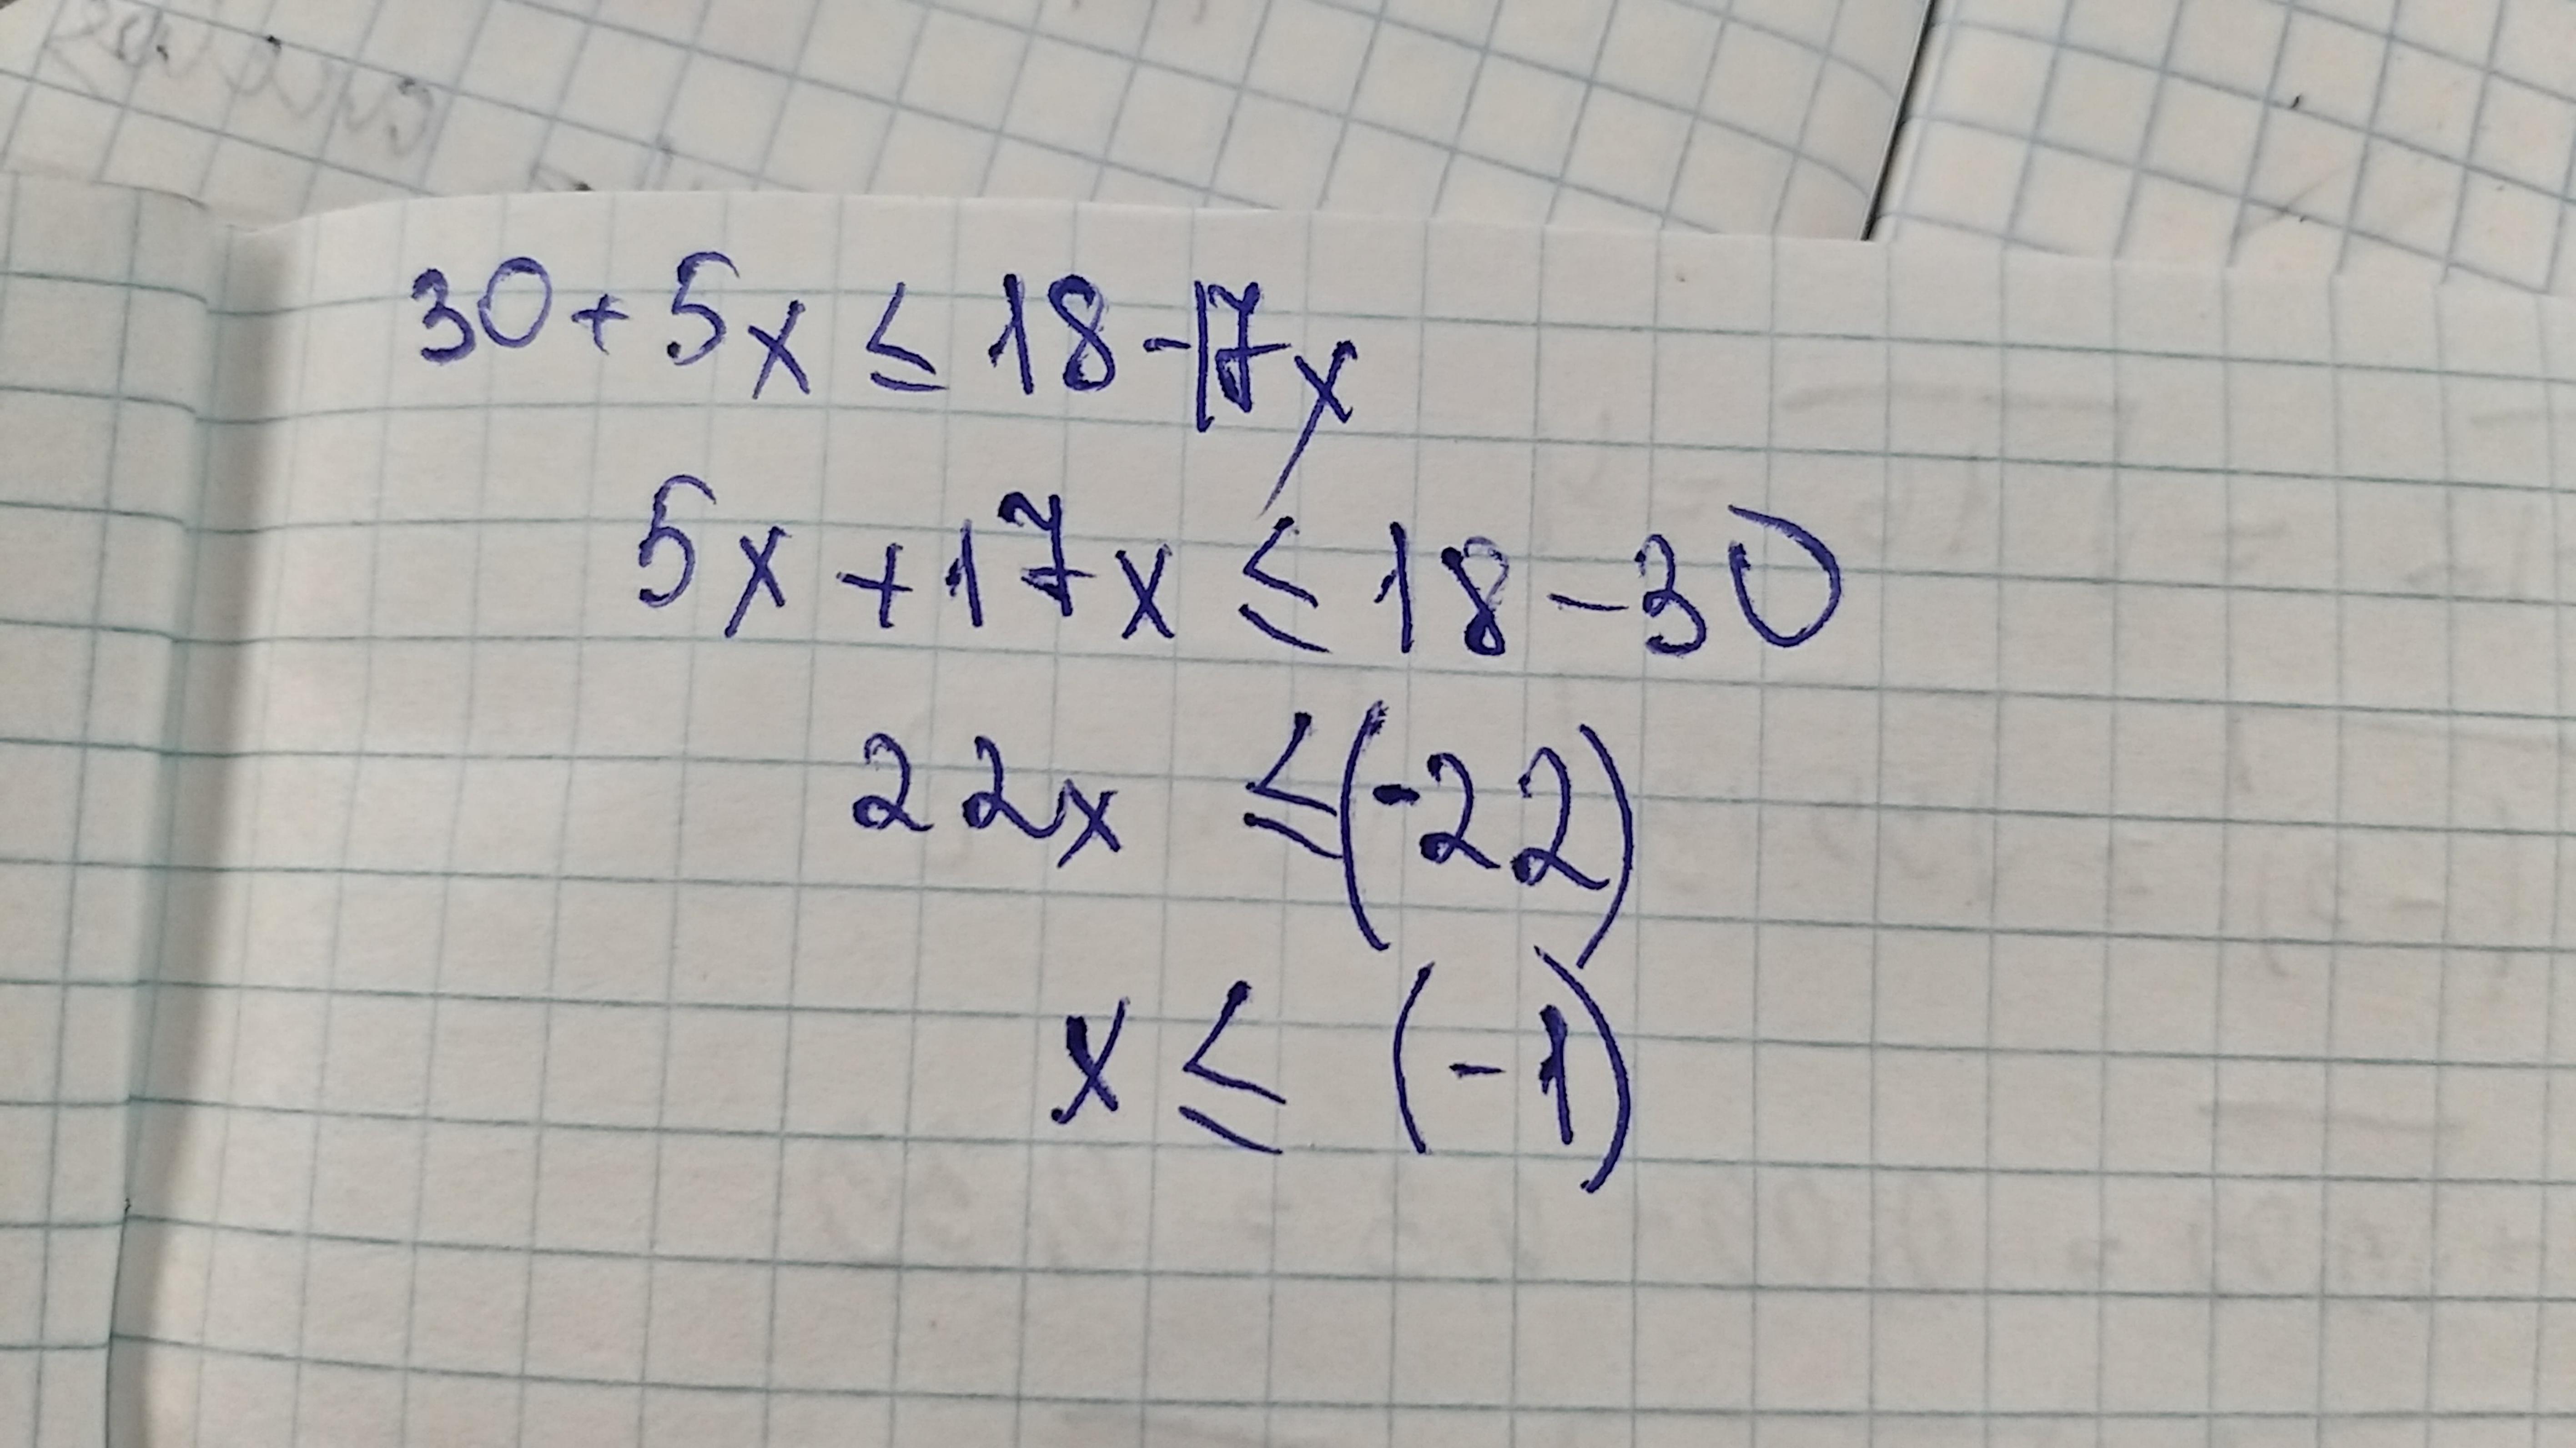 30+5x ≤ 18-17x
5x+17x ≤ 18-30
22x ≤ (-22)
x ≤ (-1)